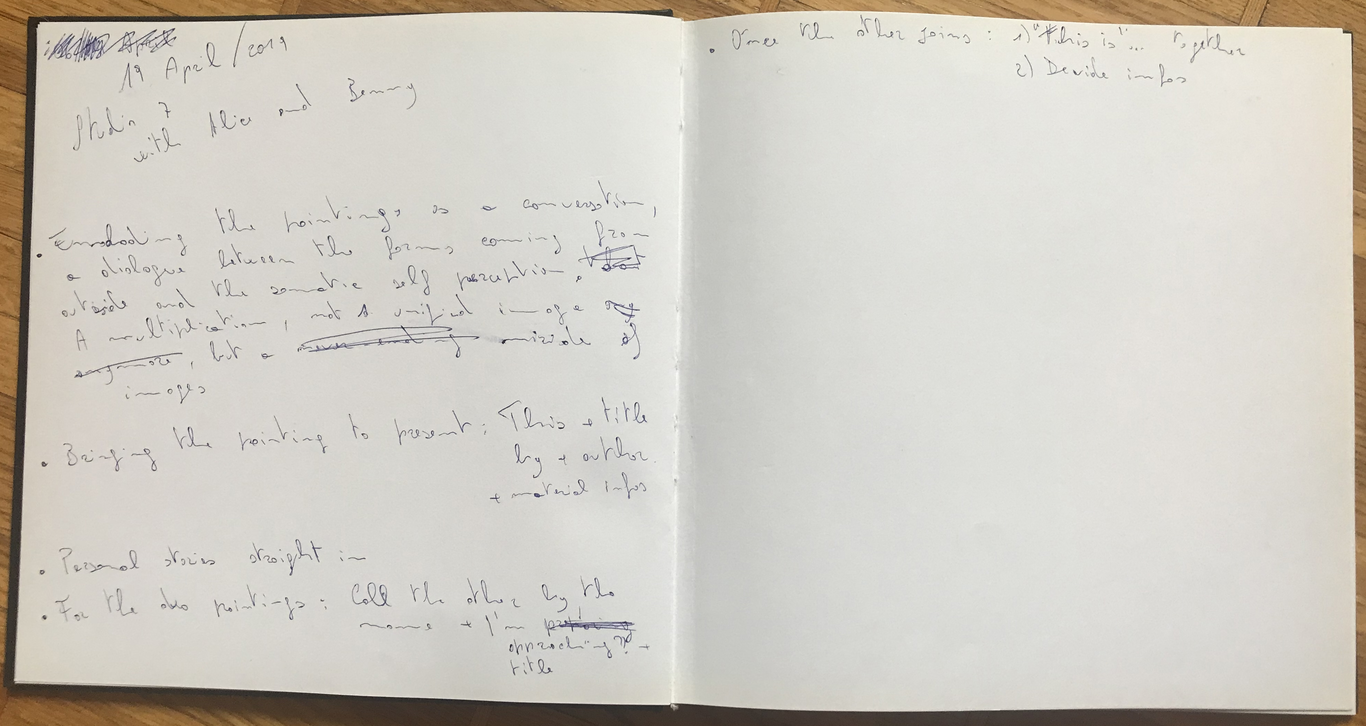 19 April/2019
Studio 7
with Alice and Benny
• Embodading the paintings as a conversation,
a dialogue between the forms coming from
outside and the somatic self perception.
A multiplication, not a unified image
, but a never-ending miriade of
images
• Bringing the painting to present: This + title
by + author
+ material infos
• Personal stories straight in
• For the duo paintings: Call the other by the
name + I'm
approaching? +
title
• Once the other joins: 1) "This is"... together
2) Devide infos